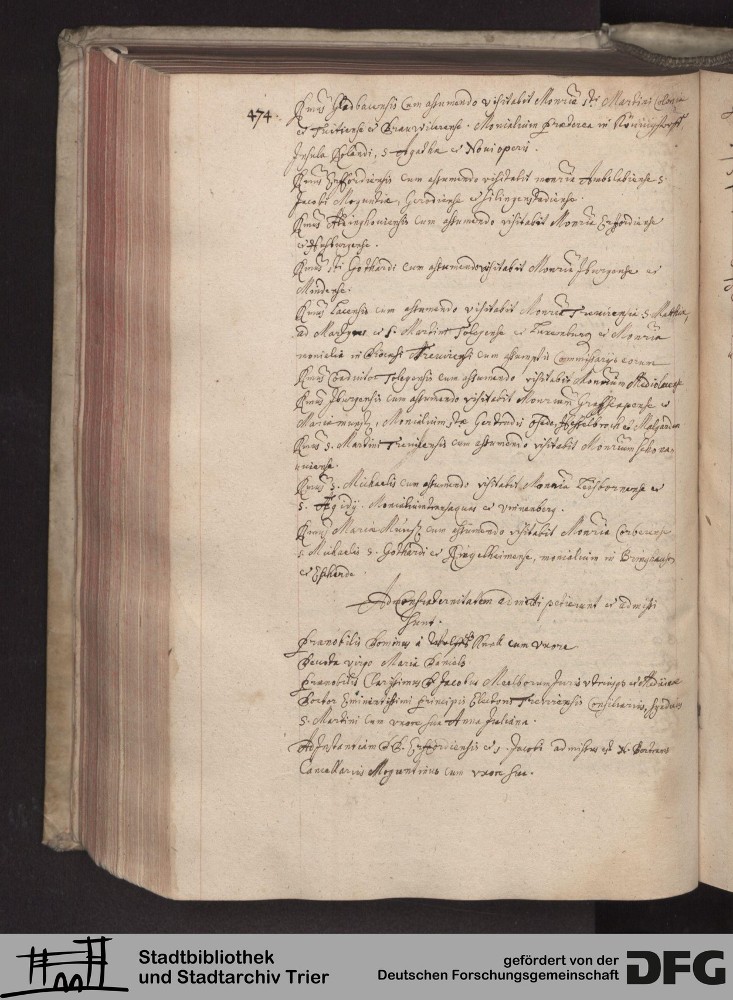 474.
Rmus Gladbacensis cum assumendo visitabit Monria sti Martini Coloniae
et Tuitiense et Brauwilerense. Monialium praeterea in Königstorff
Insula Rolandi, S. Agatha et Novi operis.
Rmus Erffordiensis cum assumendo visitabit monria S.
Jacobi Moguntiae, Gerodiense et hiligenstadiense.
Rmus cum assumendo visitabit Monria Erffordiense
et
Rmus sti Gothardi cum assumendo visitabit Monria Iburgense et
Mindense.
Rmus Lacensis cum assumendo visitabit Monria Trevirensia S. Matthiae,
ad Martyres et S. Martini Tolegense et Luxemburg. et Monria
monialia in Trevirensi cum assumptis Commissarys eorum
Rmus Coadiutor Tolegensis cum assumendo visitabit Monrium Mediolacense
Rmus Iburgensis cum assumendo visitabit Monrium et
Mariaemunst., Monialium stae Gertrudis et Malgarden
Rmus S. Martini Trevirensis cum assumendo visitabit Monrium Schonau
giense.
Rmus S. Michaelis cum assumendo visitabit Monria Luisbornense et
S. Aegidy. Monialium et Vinnenberg.
Rmus Mariae Munst. cum assumendo visitabit Monria Corbeiense
S. Michaelis S. Gothardi et Ringelheimense, monialium in Bringhausen
et
Ad Confraternitatem admitti petierunt et admissi
sunt.
Praenobilis Dominus à cum uxore
Devota virgo Maria Daniels
Praenobilis Clarissimus D. Jacobus Meelbaum Juris utriusque et
Doctor Eminentissimi Principis Electoris Trevirensis Consiliarius, Syndicus
S. Martini cum uxore sua Anna Juliana.
Ad Instantiam DD. Erffordiensis et S. Jacobi admissus est N.
Cancellarius Moguntinus cum uxore sua.
Stadtbibliothek
und Stadtarchiv Trier
gefördert von der
Deutschen Forschungsgemeinschaft
DFG